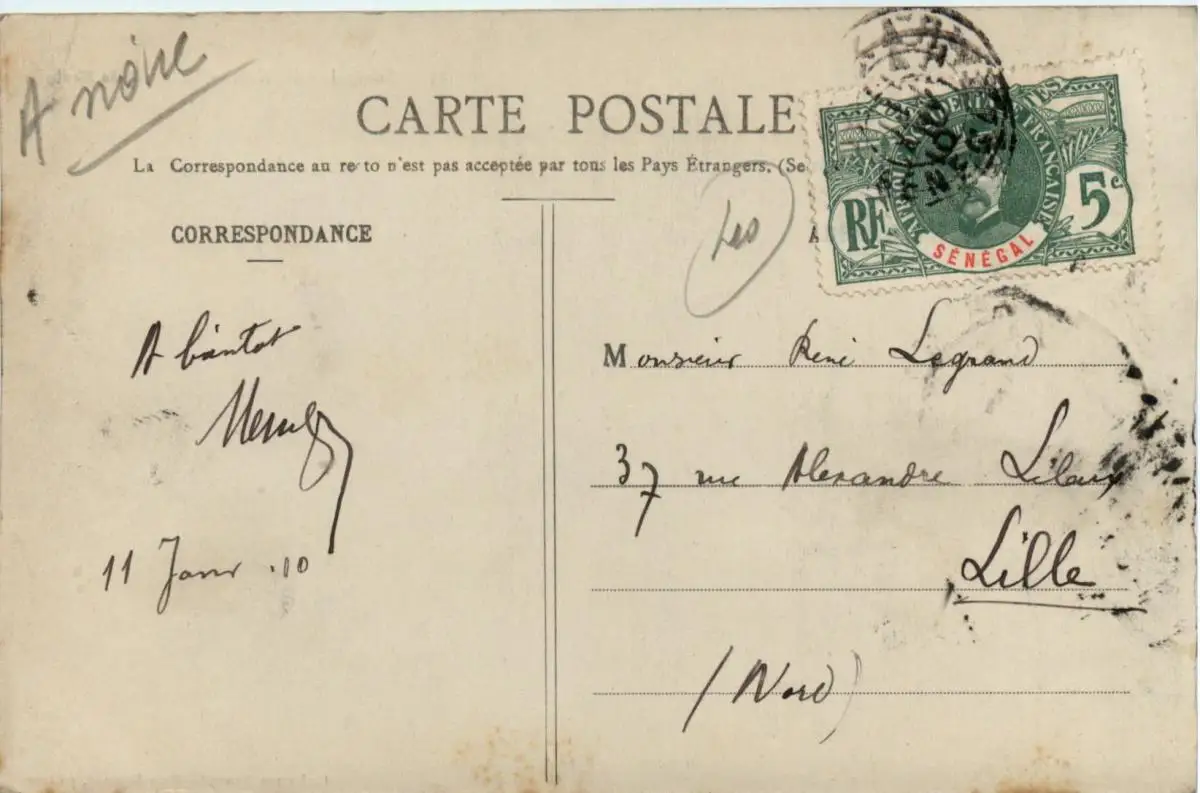 A noire
CARTE POSTALE
La Correspondance au recto n'est pas acceptée par tous les Pays Étrangers. (Se
CORRESPONDANCE
AFRIQUE OCCIDENTALE FRANÇAISE
RF
5 c.
SÉNÉGAL
A bientot
11 Janv .10
Monsieur René Legrand
37 rue Alexandre Leleux
Lille
(Nord)